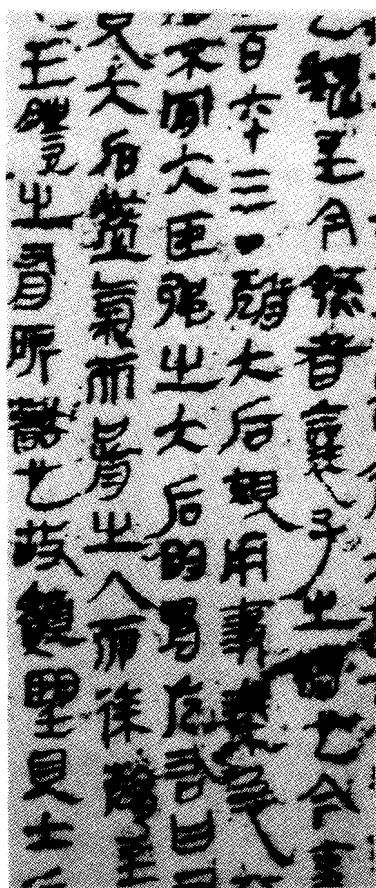 魏王今然者襄子之過也今事
百六十三●趙大后規用事秦急
不肎大臣強之大后明胃左右曰
見大后盛氣而胥之入而徐趨至
王體之有所也故願望見大